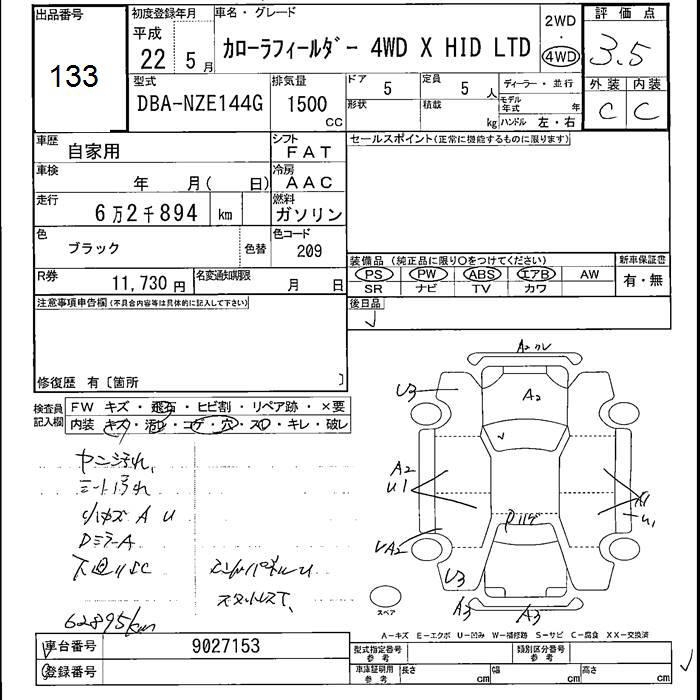 出品番号 初度登録年月 車名・グレード 2WD 評価点
133 平成 22 5月 カローラフィールダー 4WD X HID LTD ・ 4WD 3.5
型式 排気量 ドア 5 定員 5人 ディーラー・並行 外装 内装
DBA-NZE144G 1500 CC 形状 積載 kg モデル年式 年 C C
ハンドル 左・右
車歴 自家用 シフト FAT セールスポイント(正常に機能するものに限ります)
車検 年 月( 日) 冷房 AAC
走行 6万2千894 km 燃料 ガソリン
色 ブラック 色替 色コード 209
装備品 (純正品に限り○をつけてください) 新車保証書
R券 11,730円 名変通知期限 月 日 PS PW ABS エアB AW 有・無
SR ナビ TV カワ
注意事項申告欄(不具合内容等は具体的に記入して下さい) 後日品
修復歴 有〔箇所 〕
検査員記入欄 FW キズ・飛石・ヒビ割・リペア跡・×要
内装 キズ・汚レ・コゲ・穴・スレ・キレ・破レ
ヤニ汚れ
シート汚れ
A U
DミラーA
スタットレス
62895km
A2
U3
A2
A2
U1
A1
U1
U3
A3
A3
スペア
A-キズ E-エクボ U-凹み W-補修跡 S-サビ C-腐食 XX-交換済
車台番号 9027153 型式指定番号 参考 類別区分番号 参考
登録番号 車庫証明用 参考 長さ cm 幅 cm 高さ cm